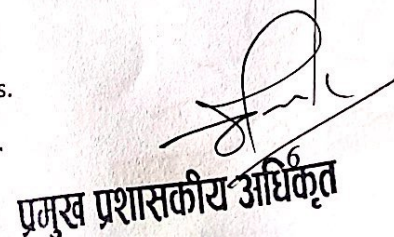 s.
.
प्रमुख प्रशासकीय अधिकृत